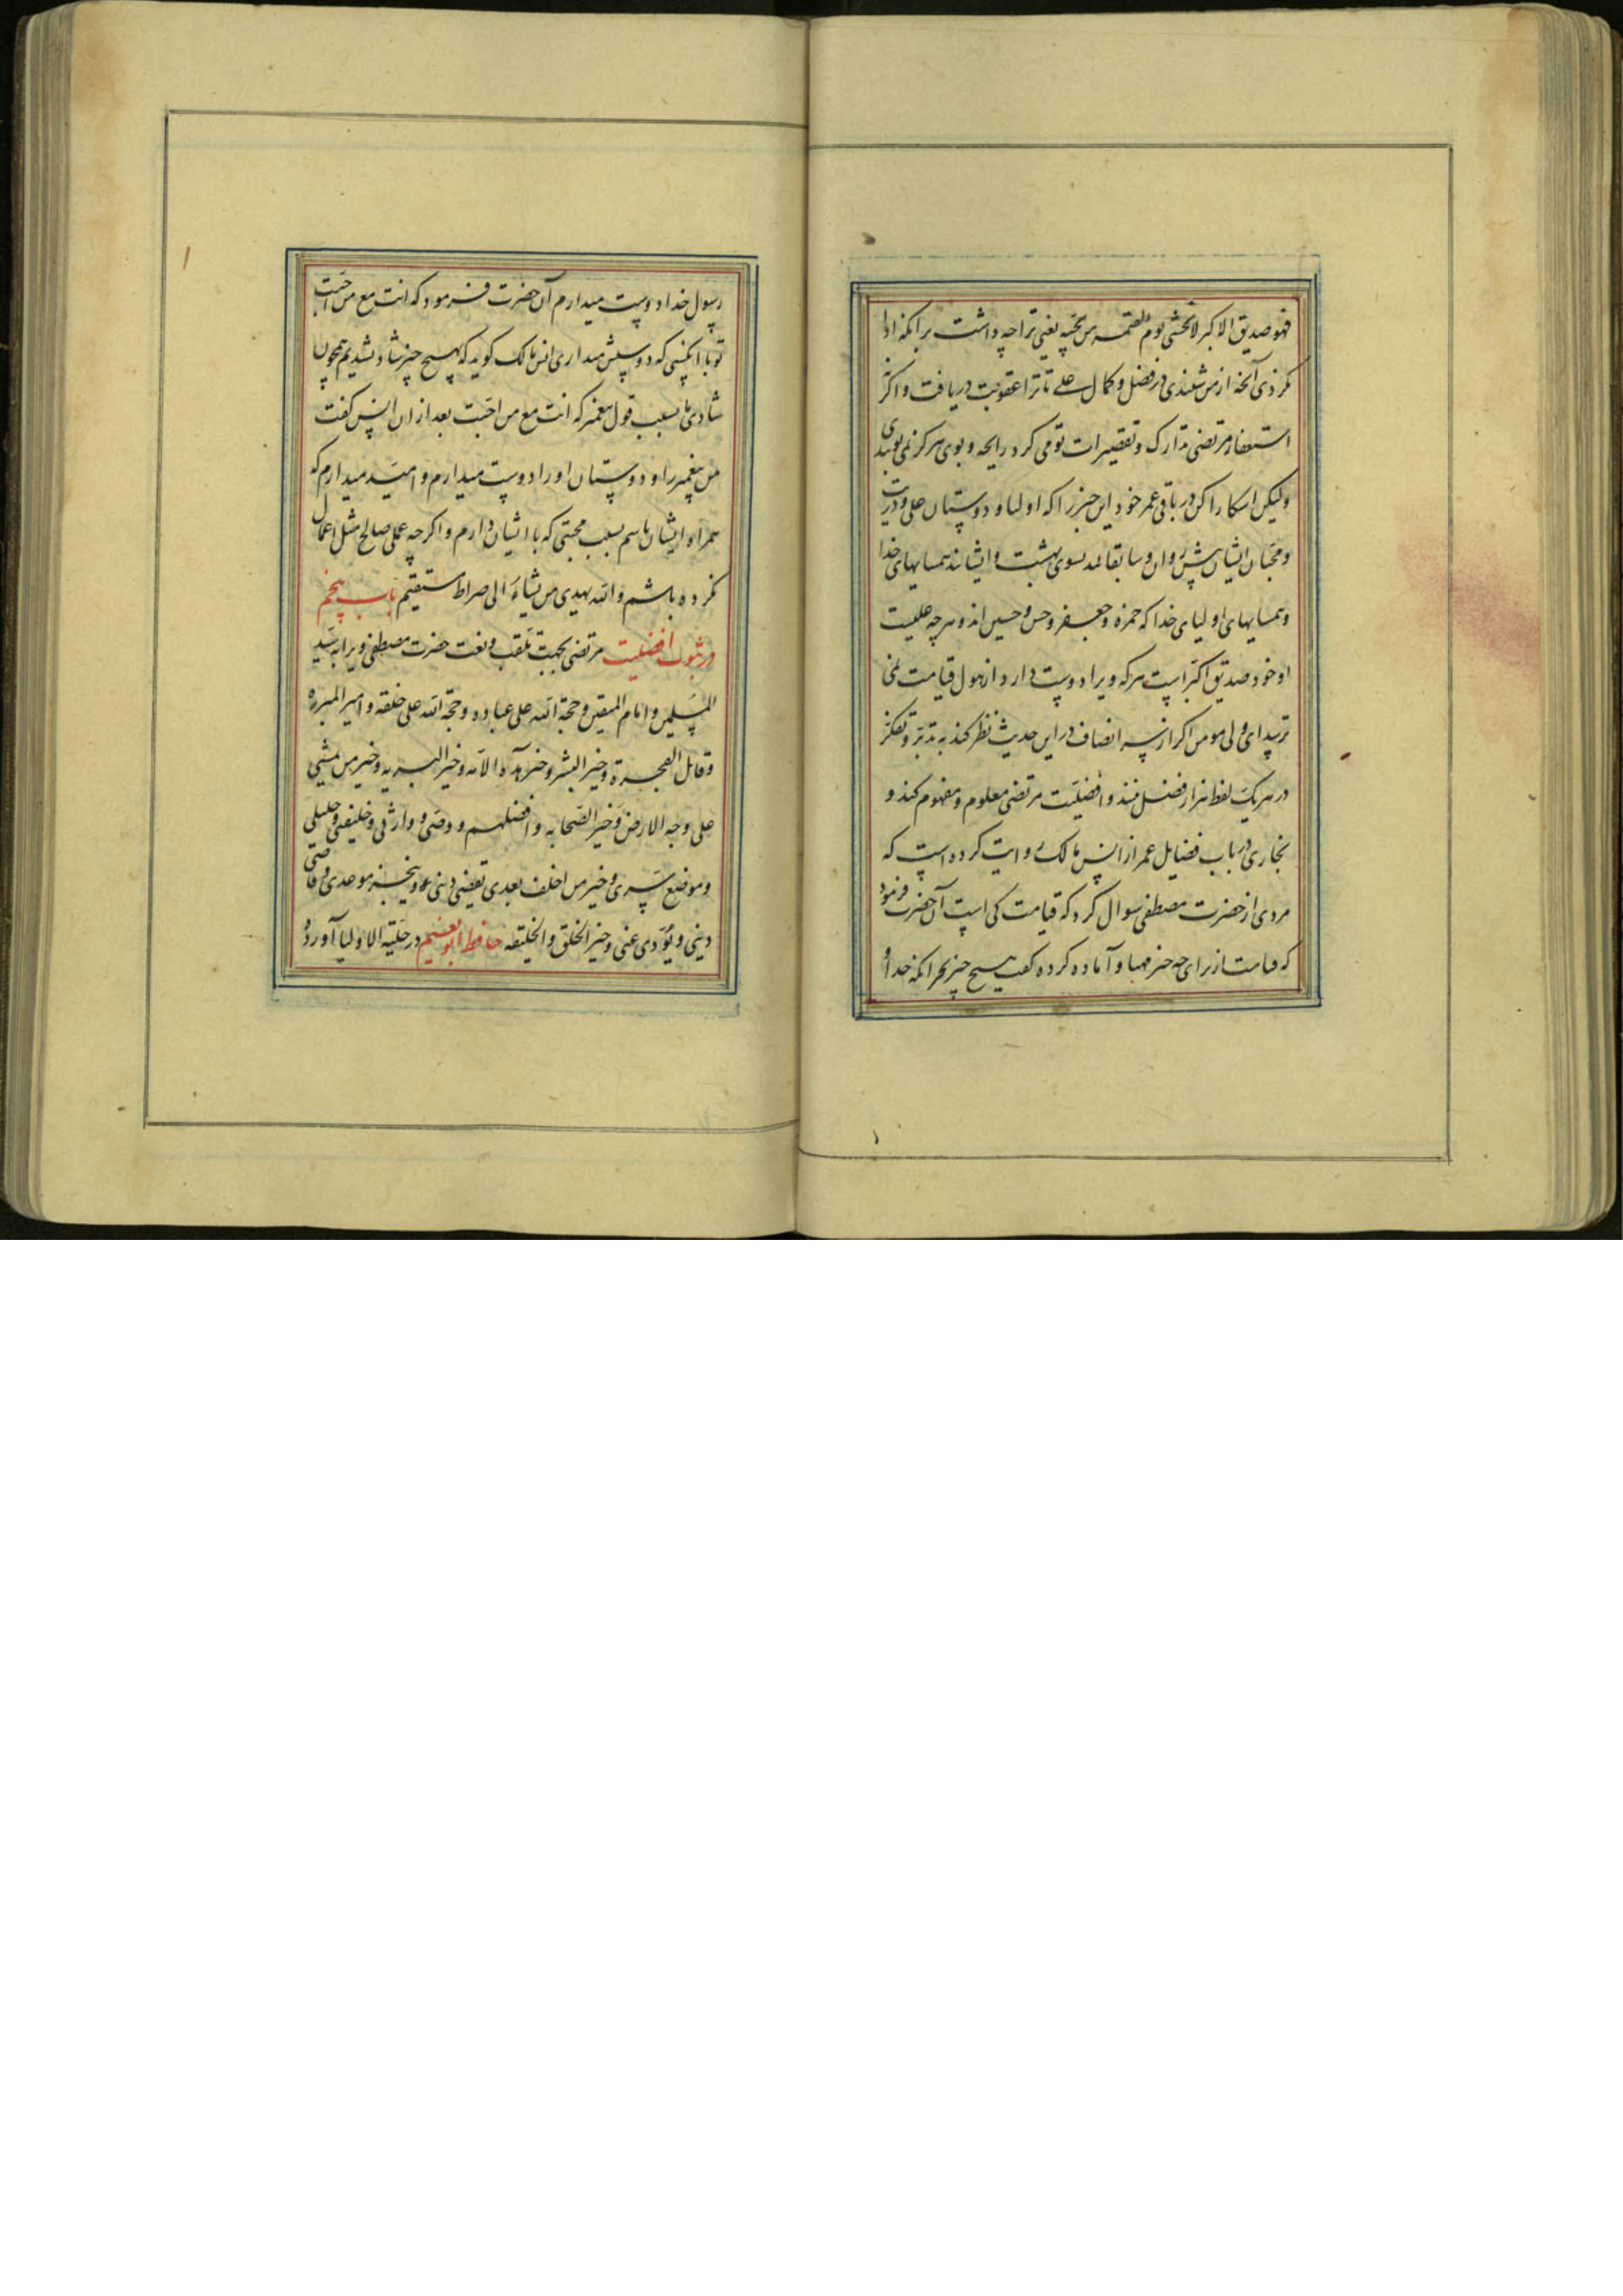 فهو صدیق الاکبر لا یخشی یوم القیمه من یحبه یعنی ترا چه داشت برانکه ادا
نکردی آنچه از من شنیدی در فضل و کمال علی تا ترا عقوبت دریافت و اکثر
استغفار مرتضی تدارک و تقصیرات تو می کرد رایحه و بوی هرکز نمی بویدی
ولیکن اشکارا کن در باقی عمر خود این خبر را که اولیا و دوستان علی و ذریت
و محبان ایشان پیش روان و سابقانند بسوی بهشت و ایشانند همسایهای خدا
و همسایهای اولیای خدا که حمزه و جعفر و حسن و حسین اند و هرچه علیست
او خود صدیق اکبر است هرکه ویرا دوست دارد از هول قیامت نمی
ترسد ای ولی مومن اکر از سر انصاف در این حدیث نظر کند به تدبر و تفکر
در هریک لفظ هزار فضل بیند و افضلیت مرتضی معلوم و مفهوم کند و
بخاری در باب فضایل عمر از انس مالک روایت کرده است که
مردی از حضرت مصطفی سوال کرد که قیامت کی است آن حضرت فرمود
که قیامت از برای چه چیز مهیا و آماده کرده گفت هیچ چیز بجز انکه خدا و
رسول خدا دوست میدارم آن حضرت فرمود که انت مع من احببت
تو با انکسی که دوستش میداری انس مالک کوید که بهیچ چیز شاد نشدیم همچون
شادی ما بسبب قول پیغمبر که انت مع من احببت بعد از ان انس کفت
من پیغمبر را و دوستان او را دوست میدارم و امید میدارم که
همراه ایشان باشم بسبب محبتی که با ایشان دارم و اکرچه عملی صالح مثل اعمال
نکرده باشم والله یهدی من یشاء الی صراط مستقیم باب پنجم
در ثبوت افضلیت مرتضی بجهت تلقب و نعت حضرت مصطفی ویرا به سید
المسلمین و امام المتقین و حجة الله علی عباده و حجة الله علی خلقه و امیر البرره
و قاتل الفجرة و خیر البشر و خیر هذه الامه و خیر البریه و خیر من یمشی
علی وجه الارض و خیر الصحابه و افضلهم و وصی و وارثی و خلیفتی و خلیلی
و موضع سری و خیر من اخلف بعدی یقضی دینی و ینجز موعدی و قاضی
دینی و یؤدی عنی و خیر الخلق و الخلیقه حافظ ابو نعیم در حلیة الاولیا آورده